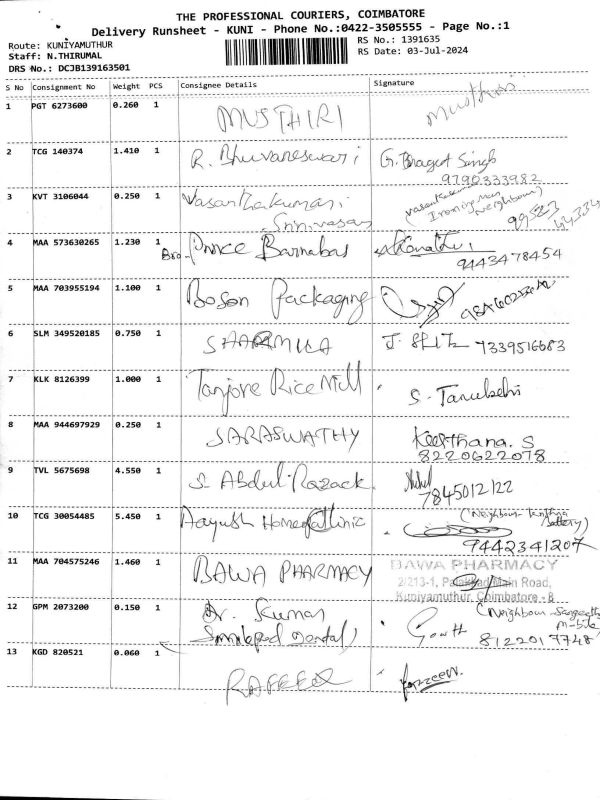 THE PROFESSIONAL COURIERS, COIMBATORE
Delivery Runsheet - KUNI - Phone No.:0422-3505555 - Page No.:1
Route: KUNIYAMUTHUR
RS No.: 1391635
Staff: N.THIRUMAL
RS Date: 03-Jul-2024
DRS No.: DCJB139163501
S No Consignment No Weight PCS Consignee Details Signature
1 PGT 6273600 0.260 1 MUSTHIRI Musthiri
2 TCG 140374 1.410 1 R. Bhuvaneswari G. Bhagat Singh
9790333982
3 KVT 3106044 0.250 1 Vasanthakumari
Srinivasan
Neighbour)
4 MAA 573630265 1.230 1 Bro- Prince Barnabas
9443478454
5 MAA 703955194 1.100 1 Boson Packaging
6 SLM 349520185 0.750 1 SHARMILA J. 7339516683
7 KLK 8126399 1.000 1 Tanjore Rice Mill S.
8 MAA 944697929 0.250 1 SARASWATHY Keerthana. S
8220622078
9 TVL 5675698 4.550 1 S. Abdul Razack
7845012122
10 TCG 30054485 5.450 1 Aayush Homeo Clinic (Neighbour-
Battery)
9442341207
11 MAA 704575246 1.460 1 BAWA PHARMACY BAWA PHARMACY
2/213-1, Palakkad Main Road,
Kuniyamuthur, Coimbatore - 8
12 GPM 2073200 0.150 1 Dr. Kumar (Neighbour Sangeetha
Dental) Gowth 8122017748
13 KGD 820521 0.060 1 RAFEEQ